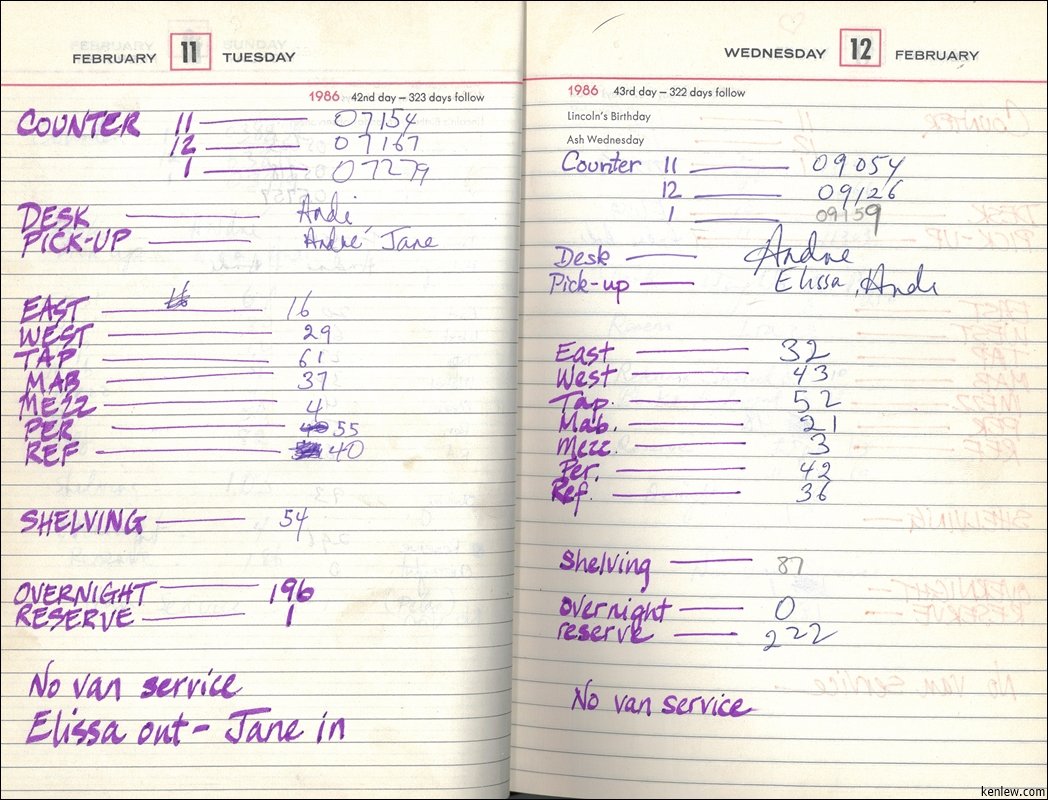 FEBRUARY 11 TUESDAY
1986 42nd day – 323 days follow
COUNTER 11 — 07154
12 — 07167
1 — 07279
DESK — Andi
PICK-UP — André Jane
EAST — 16
WEST — 29
TAP — 61
MAB — 37
MEZZ — 4
PER — 55
REF — 40
SHELVING — 54
OVERNIGHT — 196
RESERVE — 1
No van service
Elissa out – Jane in
WEDNESDAY 12 FEBRUARY
1986 43rd day – 322 days follow
Lincoln's Birthday
Ash Wednesday
Counter 11 — 09054
12 — 09126
1 — 09159
Desk — Andre
Pick-up — Elissa, Andi
East — 32
West — 43
Tap. — 52
Mab. — 21
Mezz. — 3
Per. — 42
Ref. — 36
Shelving — 87
overnight — 0
reserve — 222
No van service
kenlew.com